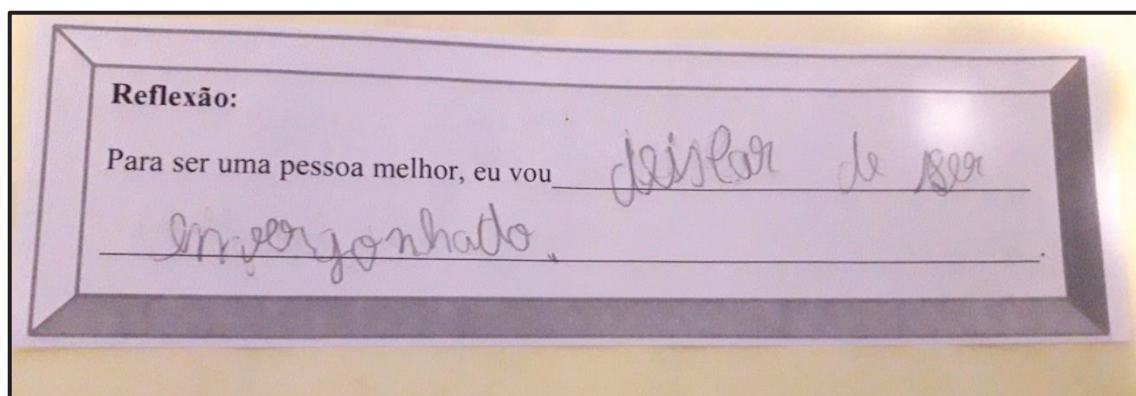 Reflexão:
Para ser uma pessoa melhor, eu vou deixar de ser
envergonhado.